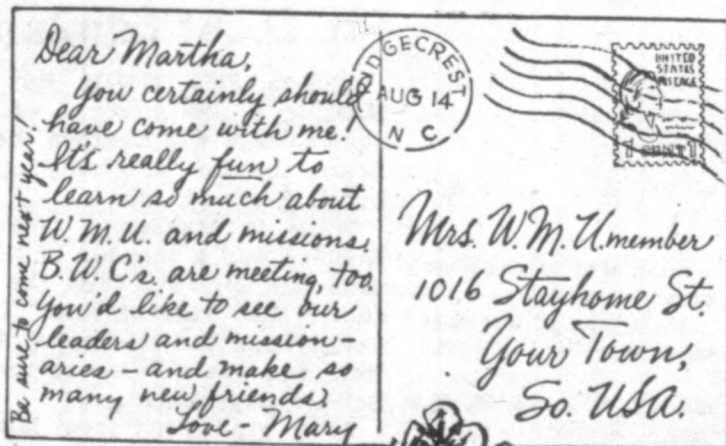 Dear Martha,
You certainly should
have come with me!
It's really fun to
learn so much about
W.M.U. and missions.
B.W.C's. are meeting, too.
You'd like to see our
leaders and mission-
aries - and make so
many new friends.
Love - Mary
Be sure to come next year!
RIDGECREST
AUG 14
N C
UNITED
STATES
POSTAGE
1 CENT 1
Mrs. W.M.U.member
1016 Stayhome St.
Your Town,
So. USA.